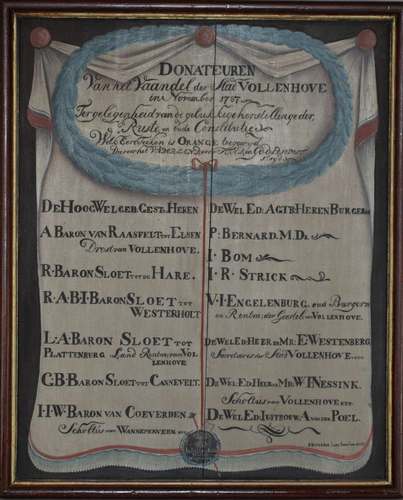 DONATEUREN
Van het Vaandel der Stad VOLLENHOVE
in November 1787.
Ter gelegenheid van de gelukkige herstellinge der,
Ruste en oude Constitutie
ORANJE
DE HOOG WELGEB. GESTR. HEREN
A BARON VAN RAASFELT tot ELSEN
Drost van VOLLENHOVE.
R. BARON SLOET tot de HARE.
R. A. B. I. BARON SLOET tot
WESTERHOLT
L. A. BARON SLOET tot
PLATTENBURG Land Rentm. van VOL
LENHOVE
C. B. BARON SLOET tot CANNEVELT.
H. W. BARON VAN COEVERDEN
Scholtus van WANNEPERVEEN
DE WEL ED. AGTB. HEREN BURGEM
P. BERNARD. M. D.
I. BOM
I. R. STRICK
V. I. ENGELENBURG, oud Burgem
en Rentm. der VOLLENHOVE
DE WEL ED HEER EN MR. E WESTENBERG
Secretaris der Stad VOLLENHOVE
DE WEL ED. HEER MR. W. I NESSINK.
Scholtus van VOLLENHOVE
DE WEL ED. A. VAN DER POEL.